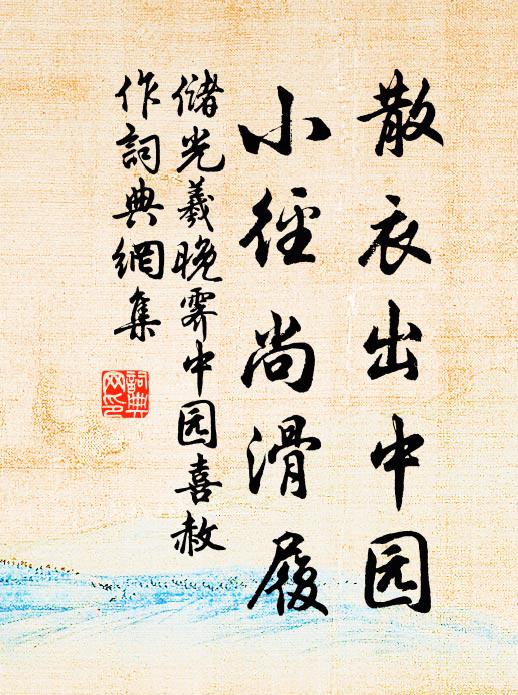 散衣出中园
小徑尚滑履
儲光羲晚霽中园喜赦
作詞典網集
詞典
网印